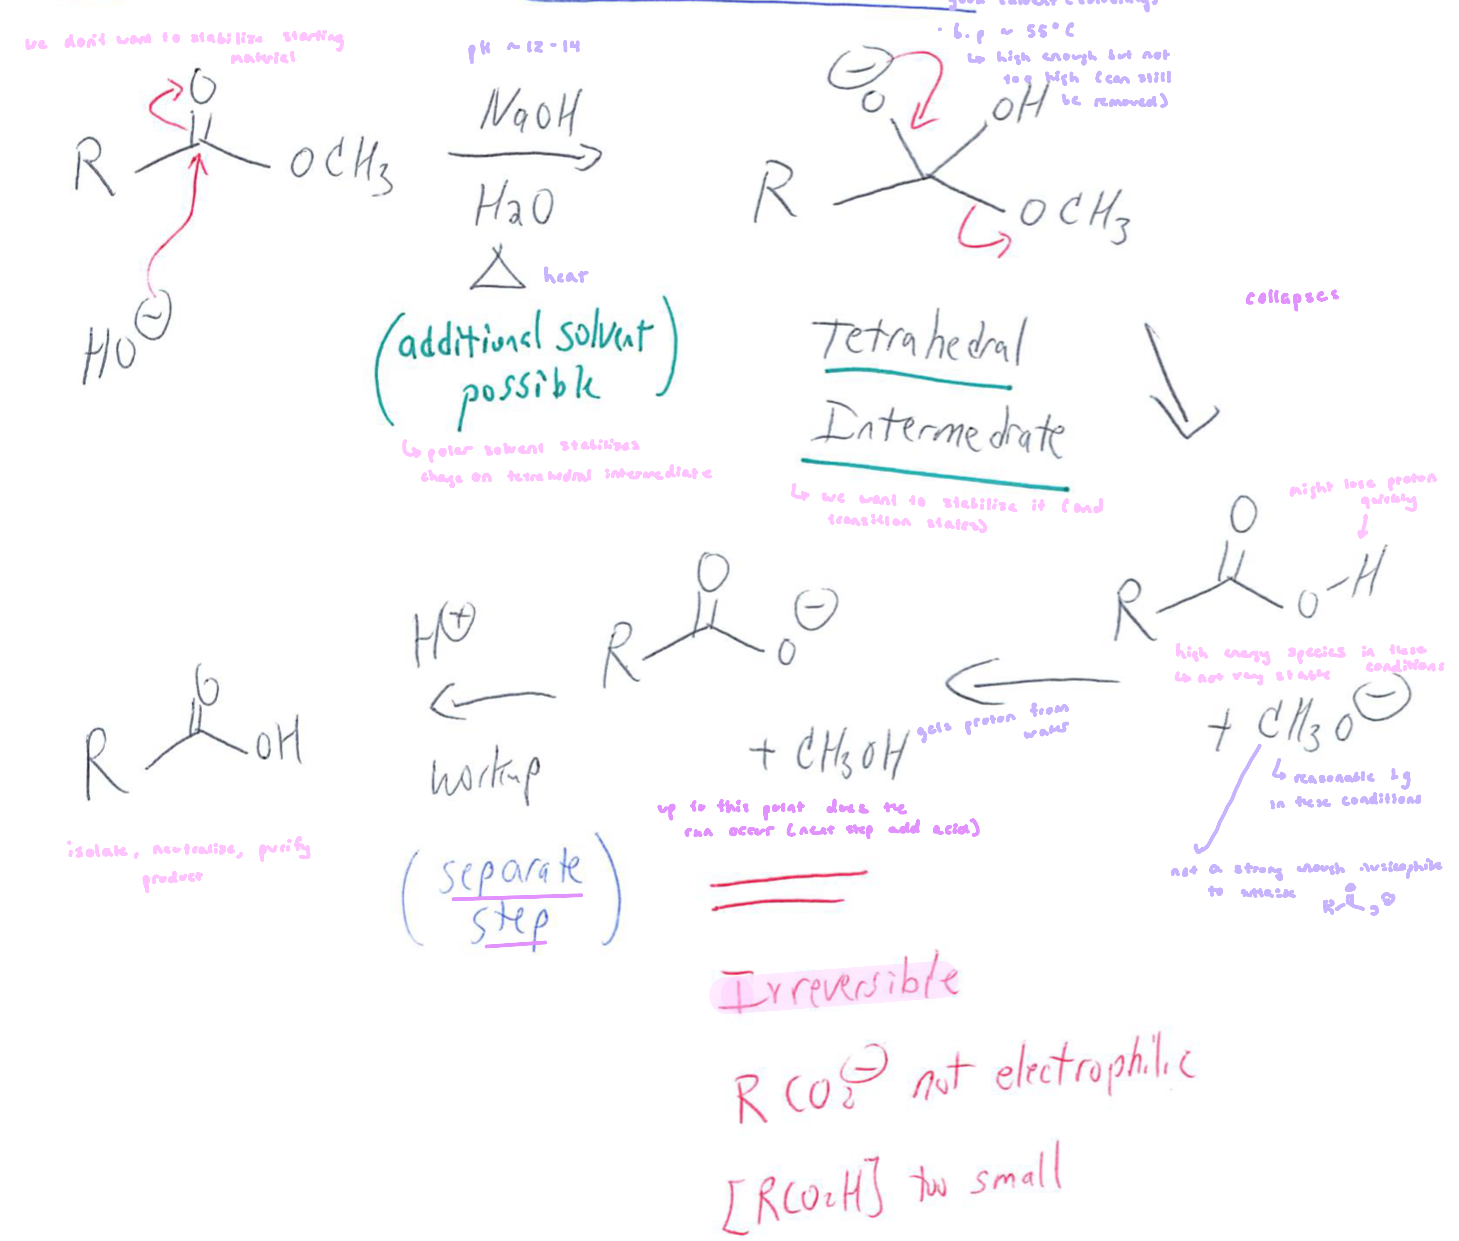 we don't want to stabilize starting
material
O
R
OCH3
HO⊖
pH ~12-14
NaOH
H2O
△ heat
(additional solvent
possible)
↳ polar solvent stabilizes
charge on tetrahedral intermediate
· b.p ~ 55°C
↳ high enough but not
too high (can still
be removed)
⊖
O
OH
R
OCH3
Tetrahedral
Intermediate
↳ we want to stabilize it (and
transition states)
collapses
might lose proton
quickly
O
R
O-H
high energy species in these
conditions
↳ not very stable
+ CH3O⊖
↳ reasonable lg
in these conditions
not a strong enough nucleophile
to attack
gets proton from
water
O
R
O⊖
+ CH3OH
up to this point does the
rxn occur (next step add acid)
H⊕
workup
(separate
step)
O
R
OH
isolate, neutralize, purify
product
Irreversible
RCO2⊖ not electrophilic
[RCO2H] too small